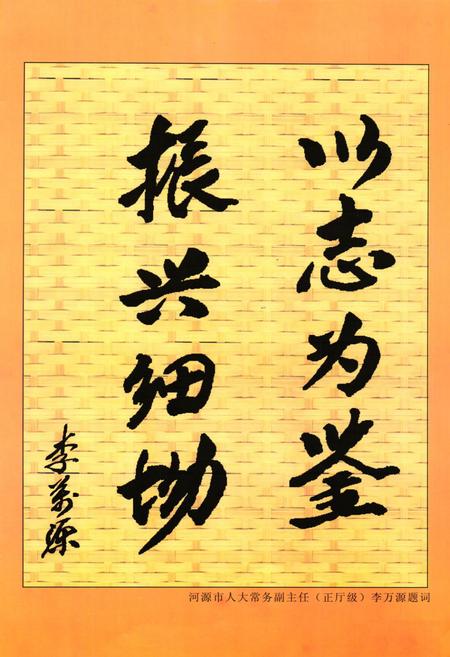 以志为鉴
振兴细坳
李万源
河源市人大常务副主任（正厅级）李万源题词